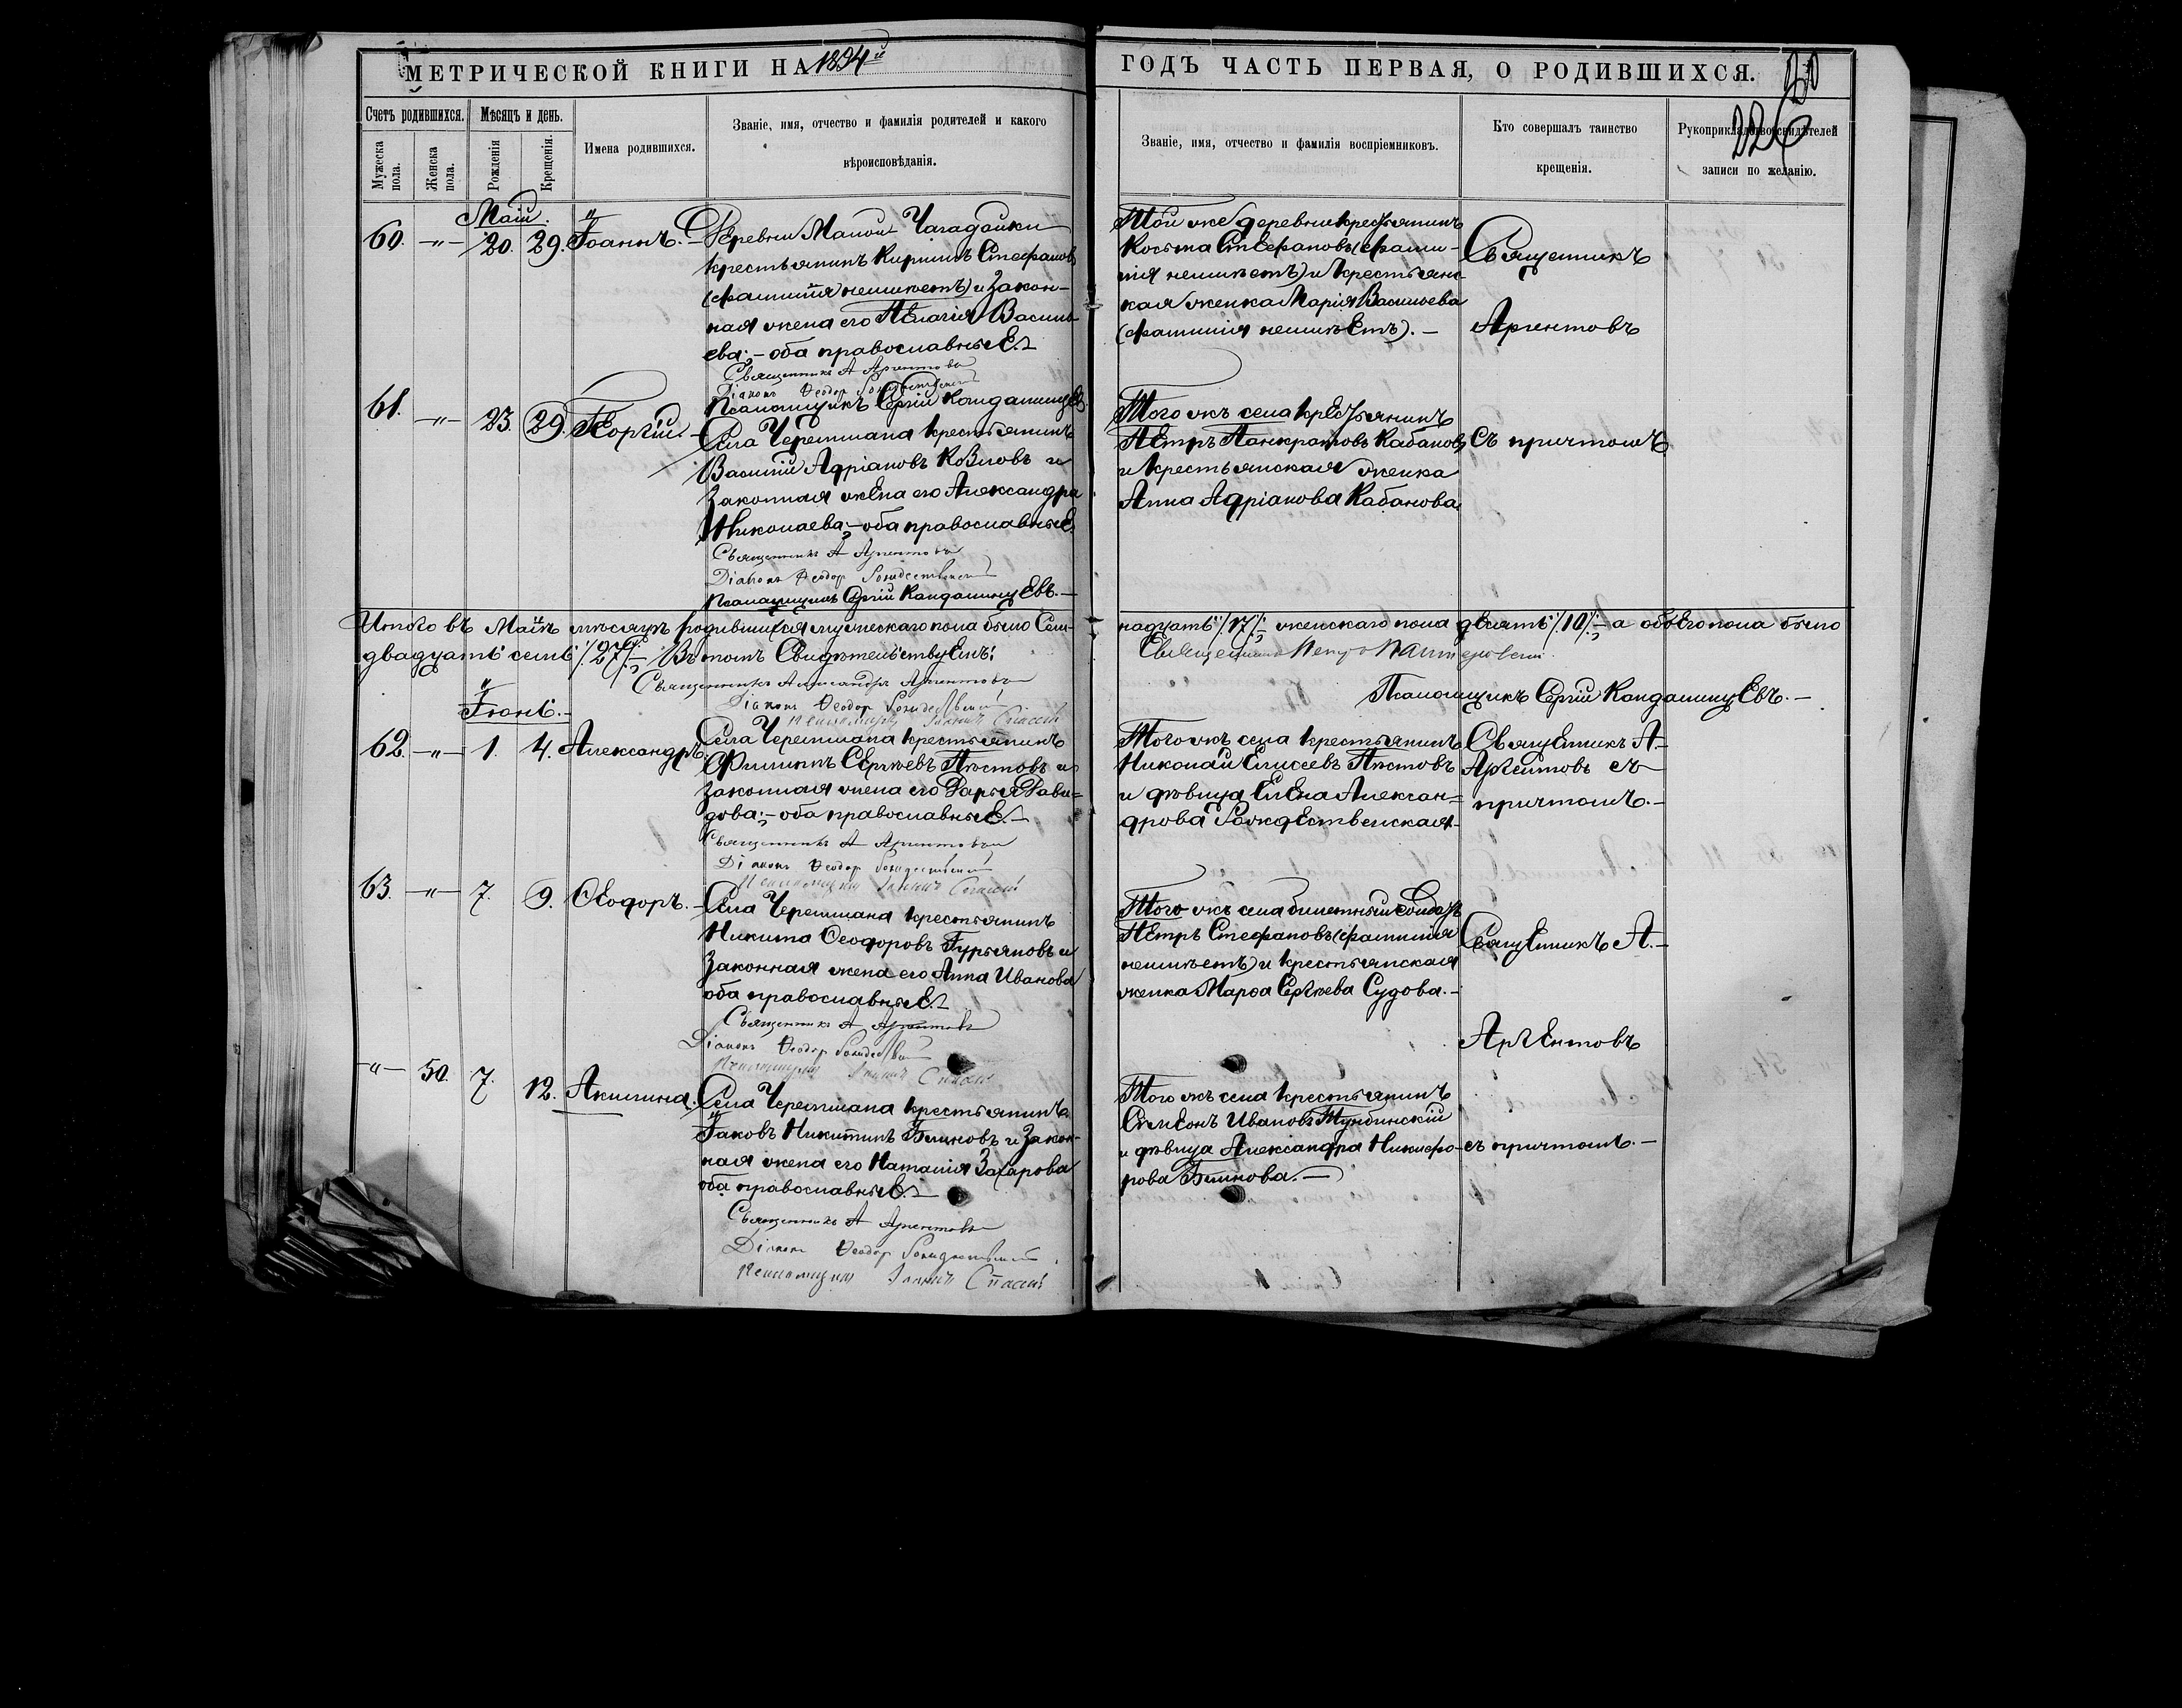 МЕТРИЧЕСКОЙ КНИГИ НА 1894й
ГОДЪ ЧАСТЬ ПЕРВАЯ, О РОДИВШИХСЯ.
226
Счетъ родившихся.
Мѣсяцъ и день.
Мужеска пола.
Женска пола.
Рожденія
Крещенія.
Имена родившихся.
Званіе, имя, отчество и фамилія родителей и какого
вѣроисповѣданія.
Званіе, имя, отчество и фамилія воспріемниковъ.
Кто совершалъ таинство
крещенія.
Рукоприкладство свидѣтелей
записи по желанію.
Май.
60. -"- 20. 29. Іоаннъ.
Деревни Малой Чагадайки
крестьянинъ Кириллъ Стефановъ
(фамиліи неимѣетъ) и закон-
ная жена его Пелагія Василь-
ева; - оба православные.
Священникъ А Аргентовъ
Діаконъ Ѳеодор Рождественскій
Псаломщикъ Сергій Кандалинцевъ
Той же деревни крестьянинъ
Косьма Стефановъ (фами-
лія неимѣетъ) и крестьянс-
кая женка Марія Васильева
(фамилія неимѣетъ). -
Священникъ
Аргентовъ
61. -"- 23. 29. Георгій.
Села Черемшана крестьянинъ
Василій Адріановъ Козловъ и
законная жена его Александра
Николаева; - оба православные.
Священникъ А Аргентовъ
Діаконъ Ѳеодор Рождественскій
Псаломщикъ Сергій Кандалинцевъ. -
Того жъ села крестьянинъ
Петръ Панкратовъ Кабановъ
и крестьянская женка
Анна Адріанова Кабанова.
съ причтомъ
Итого въ Маѣ мѣсяцѣ родившихся мужескаго пола было Сем-
надцать /17/, женскаго пола десять /10/, а обоего пола было
двадцать семь /27/; Въ томъ Свидѣтельствуемъ:
Священникъ Александръ Аргентовъ
Священникъ Петръ
Діаконъ Ѳеодор Рождественскій
Псаломщикъ Сергій Кандалинцевъ. -
Іюнь. -
62. -"- 1. 4. Александръ.
Села Черемшана крестьянинъ
Филиппъ Сергѣевъ Пѣстовъ и
законная жена его Дарья Дави-
дова; - оба православные. -
Священникъ А Аргентовъ
Діаконъ Ѳеодор Рождественскій
Того жъ села крестьянинъ
Николай Елисеевъ Пѣстовъ
и дѣвица Елена Алексан-
дрова Рождественская.
Священникъ А. -
Аргентовъ съ
причтомъ. -
63. -"- 7. 9. Ѳеодоръ. -
Села Черемшана крестьянинъ
Никита Ѳеодоровъ Гурьяновъ и
законная жена его Анна Иванова
оба православные.
Священникъ А Аргентовъ
Діаконъ Ѳеодор Рождественскій
Того жъ села билетный солдатъ
Петръ Стефановъ (фамиліи
неимѣетъ) и крестьянская
женка Марѳа Сергѣева Судова. -
Священникъ А. -
Аргентовъ
-"- 50. 7. 12. Акилина.
Села Черемшана крестьянинъ
Іаковъ Никитинъ Блиновъ и закон-
ная жена его Наталія Захарова
оба православные. -
Священникъ А Аргентовъ
Діаконъ Ѳеодор Рождественскій
Псаломщикъ Спасскій
Того жъ села крестьянинъ
Симеонъ Ивановъ Тунбинскій
и дѣвица Александра Никифо-
рова Блинова. -
съ причтомъ. -